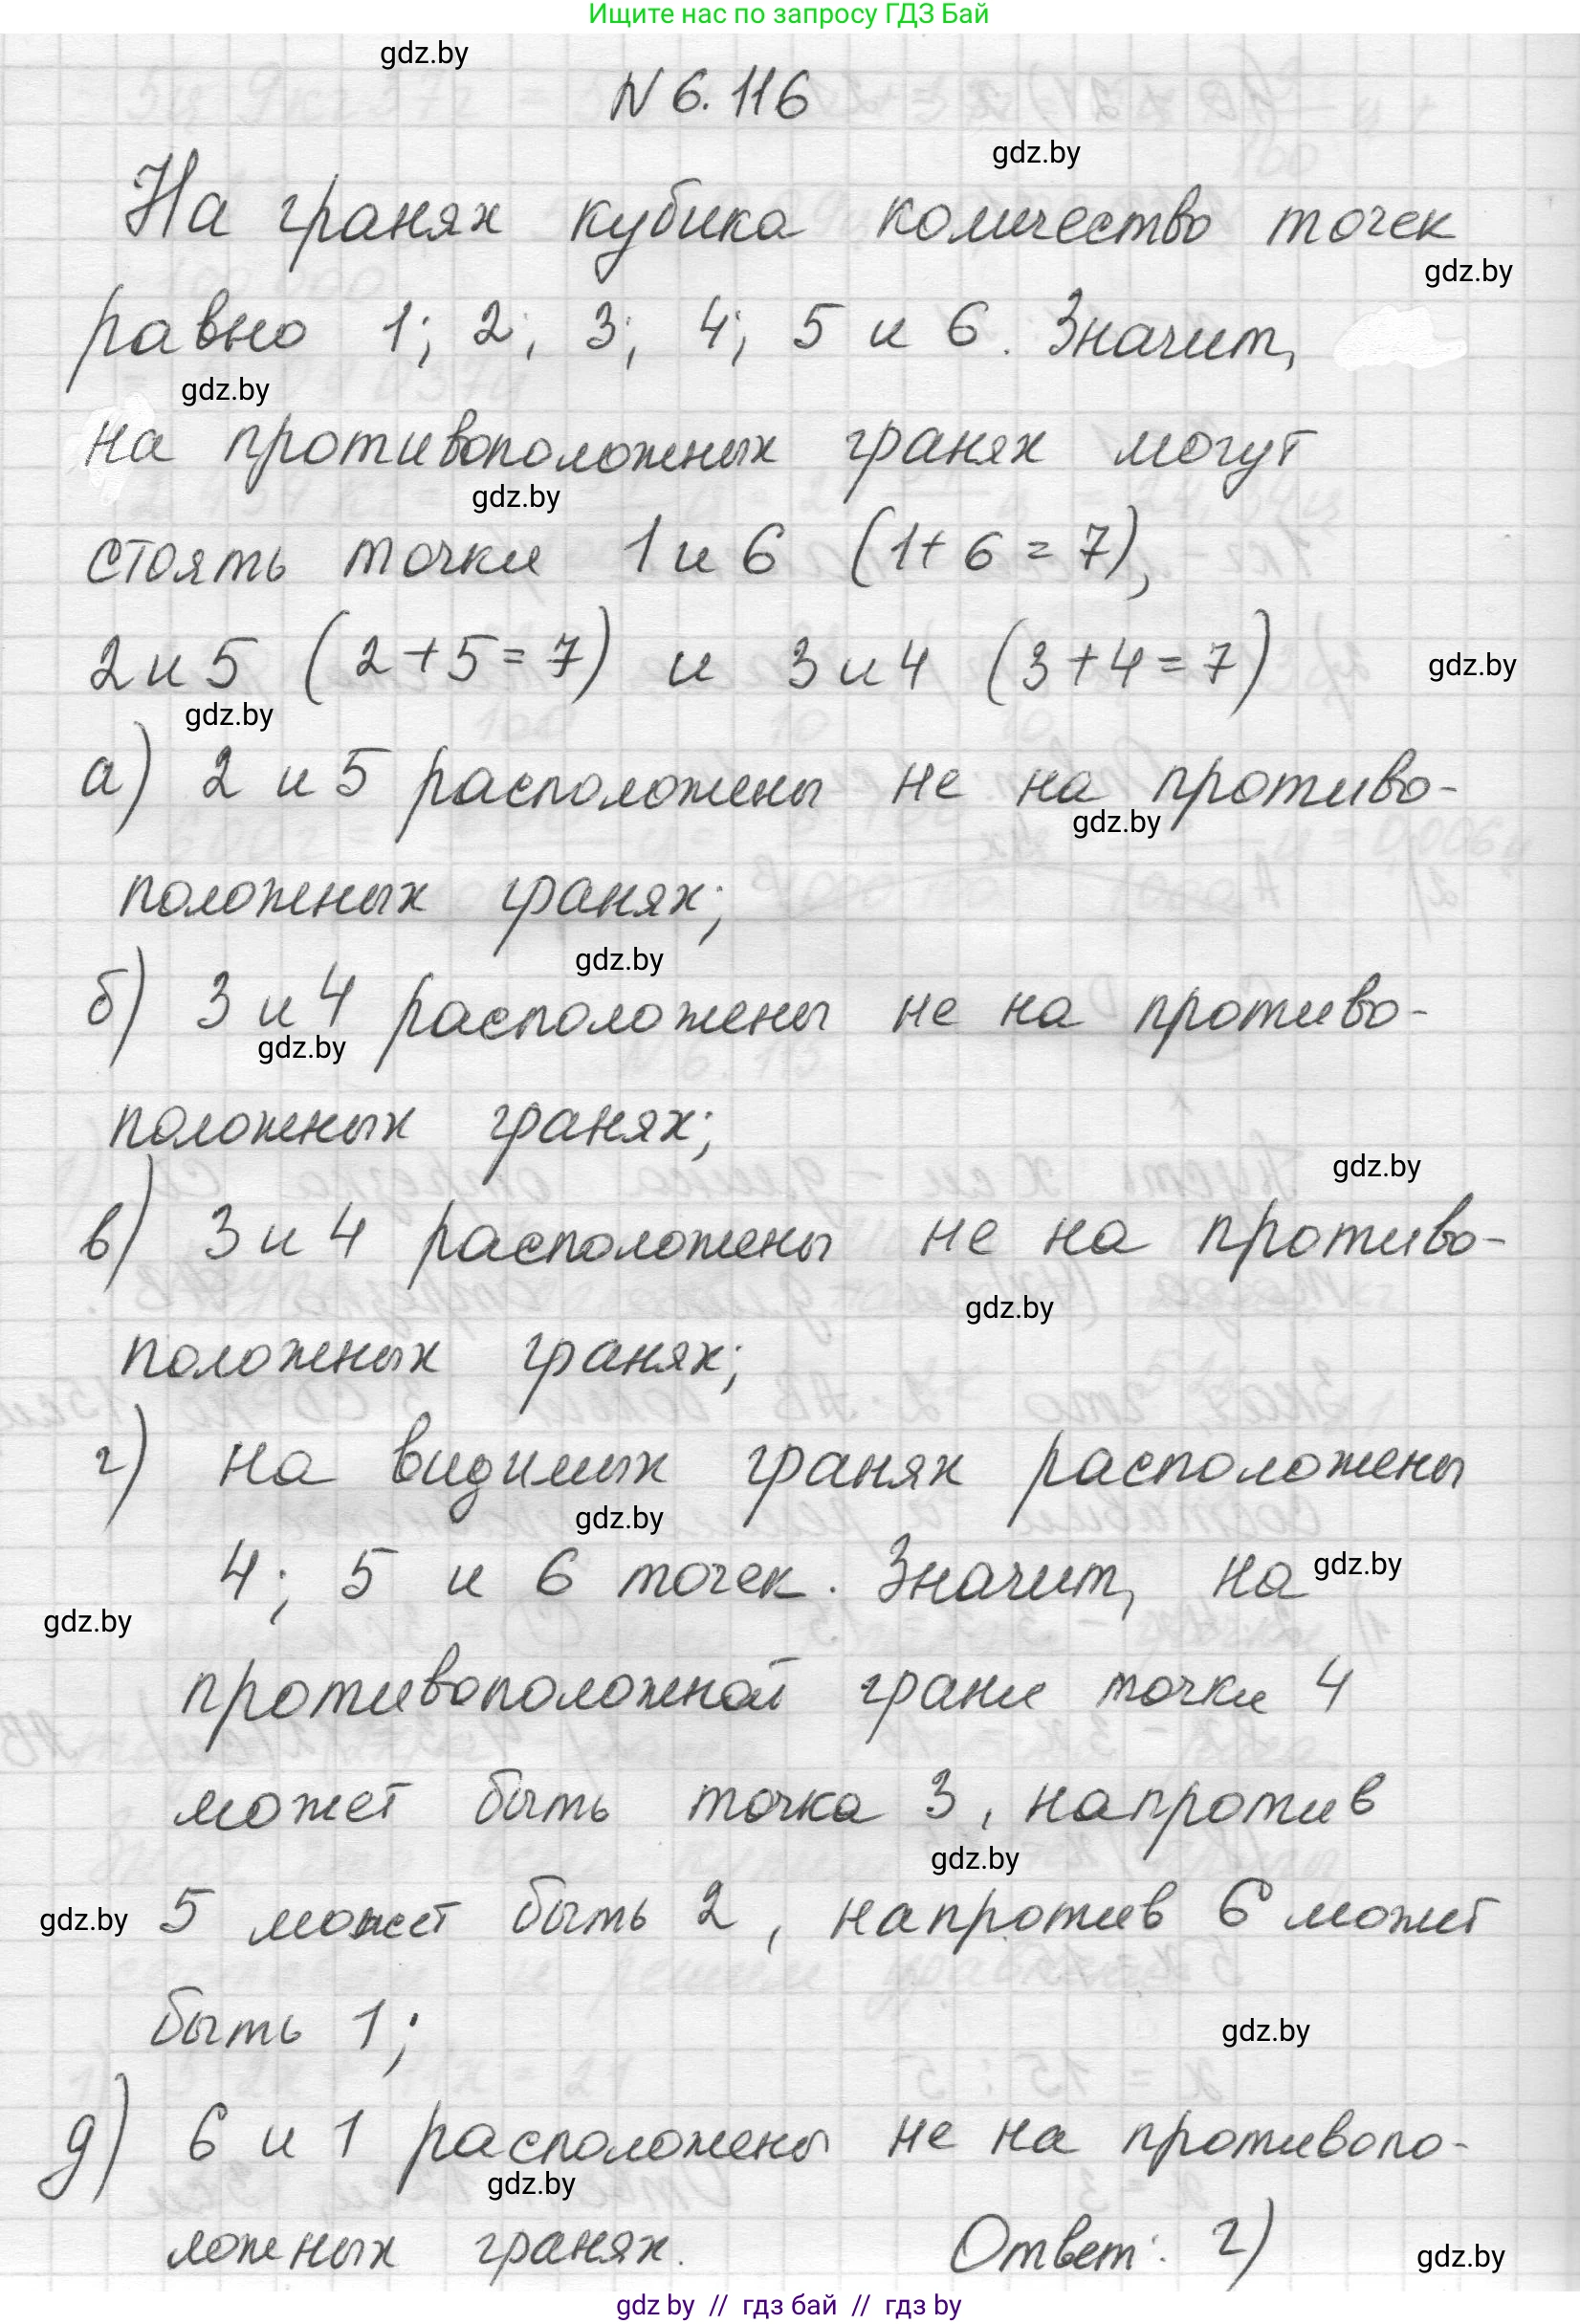 Ищите нас по запросу ГДЗ Бай
gdz.by
N 6.116
gdz.by
На гранях кубика количество точек
gdz.by
равно 1; 2; 3; 4; 5 и 6. Значит,
gdz.by
на противоположных гранях могут
gdz.by
стоять точки 1 и 6 (1+6=7),
2 и 5 (2+5=7) и 3 и 4 (3+4=7)
gdz.by
gdz.by
а) 2 и 5 расположены не на противо-
gdz.by
положных гранях;
gdz.by
б) 3 и 4 расположены не на противо-
gdz.by
положных гранях;
gdz.by
в) 3 и 4 расположены не на противо-
gdz.by
положных гранях;
г) на видимых гранях расположены
gdz.by
4; 5 и 6 точек. Значит, на
gdz.by
gdz.by
противоположной грани точки 4
может быть точка 3, напротив
gdz.by
gdz.by
5 может быть 2, напротив 6 может
быть 1;
gdz.by
д) 6 и 1 расположены не на противопо-
gdz.by
ложных гранях. Ответ: г)
gdz.by
gdz by // гдз бай // гдз by